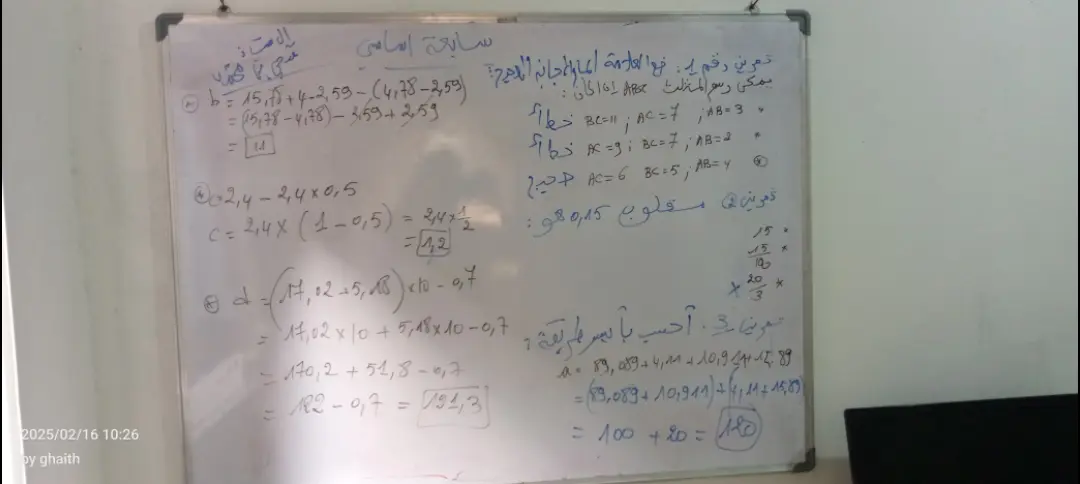 سابعة أساسي
تمرين رقم 1: ضع العلامة أمام الإجابة الصحيحة:
يمكن رسم المثلث ABC إذا كان:
* AB=3 ; AC=7 ; BC=11 خطأ
* AB=2 ; BC=7 ; AC=9 خطأ
⊗ AB=4 ; BC=5 AC=6 صحيح
تمرين 2 مقلوب 0,15 هو:
* 15
* 15/10
* 20/3 ×
تمرين 3. أحسب بأيسر طريقة:
a = 89,089+4,11+10,911+15,89
= (89,089+10,911)+(4,11+15,89)
= 100 + 20 = 120
b = 15,78+4-2,59-(4,78-2,59)
= (15,78-4,78)-2,59+2,59
= 11
2,4-2,4×0,5
c = 2,4×(1-0,5) = 2,4×1/2
= 1,2
d = (17,02+5,18)×10-0,7
= 17,02×10+5,18×10-0,7
= 170,2+51,8-0,7
= 192-0,7 = 191,3
2025/02/16 10:26
by ghaith